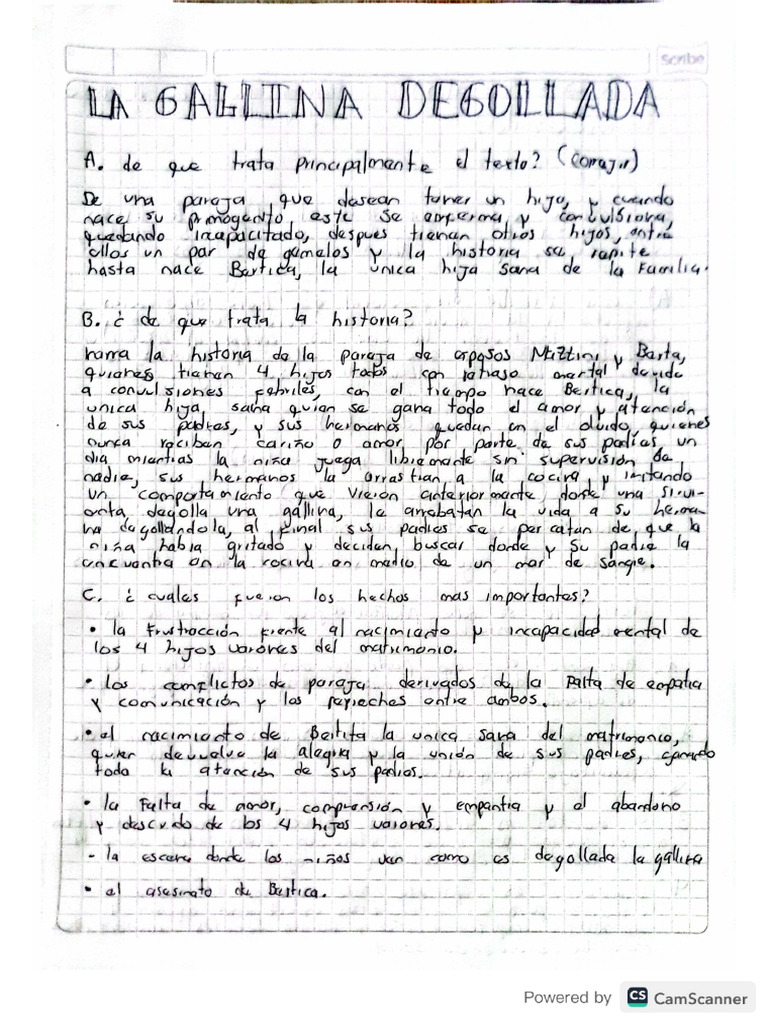 Scribe
LA GALLINA DEGOLLADA
A. de que trata principalmente el texto? (corregir)
De una pareja que desean tener un hijo, y cuando
nace su primogenito, este se enferma y convulsiona,
quedando incapacitado, despues tienen otros hijos, entre
ellos un par de gemelos y la historia se repite
hasta nace Bertica, la única hija sana de la Familia.
B. ¿ de que trata la historia?
narra la historia de la pareja de esposos Mazzini y Berta,
quienes tienen 4 hijos todos con retraso mental devido
a convulsiones febriles, con el tiempo nace Bertica, la
unica hija sana quien se gana todo el amor y atención
de sus padres, y sus hermanos quedan en el olvido, quienes
nunca reciben cariño o amor por parte de sus padres, un
dia mientras la niña juega libremente sin supervisión de
nadie, sus hermanos la arrastran a la cocina y imitando
un comportamiento que vieron anteriormente, donde una sirvi-
enta degolla una gallina, le arrebatan la vida a su herma-
na degollandola, al final sus padres se percatan de que la
niña habia gritado y deciden buscar donde y su padre la
encuentra en la cocina en medio de un mar de sangre.
C. ¿ cuales fueron los hechos mas importantes?
• la frustracción frente al nacimiento y incapacidad mental de
los 4 hijos varones del matrimonio.
• los conflictos de pareja derivados de la falta de empatia
y comunicación y los reproches entre ambos.
• el nacimiento de Bertita la unica sana del matrimonio,
quien devuelve la alegria y la unión de sus padres, ganando
toda la atención de sus padres.
• la Falta de amor, comprensión y empantia y el abandono
y descuido de los 4 hijos varones.
- la escena donde los niños ven como es degollada la gallina
• el asesinato de Bertica.
Powered by CS CamScanner